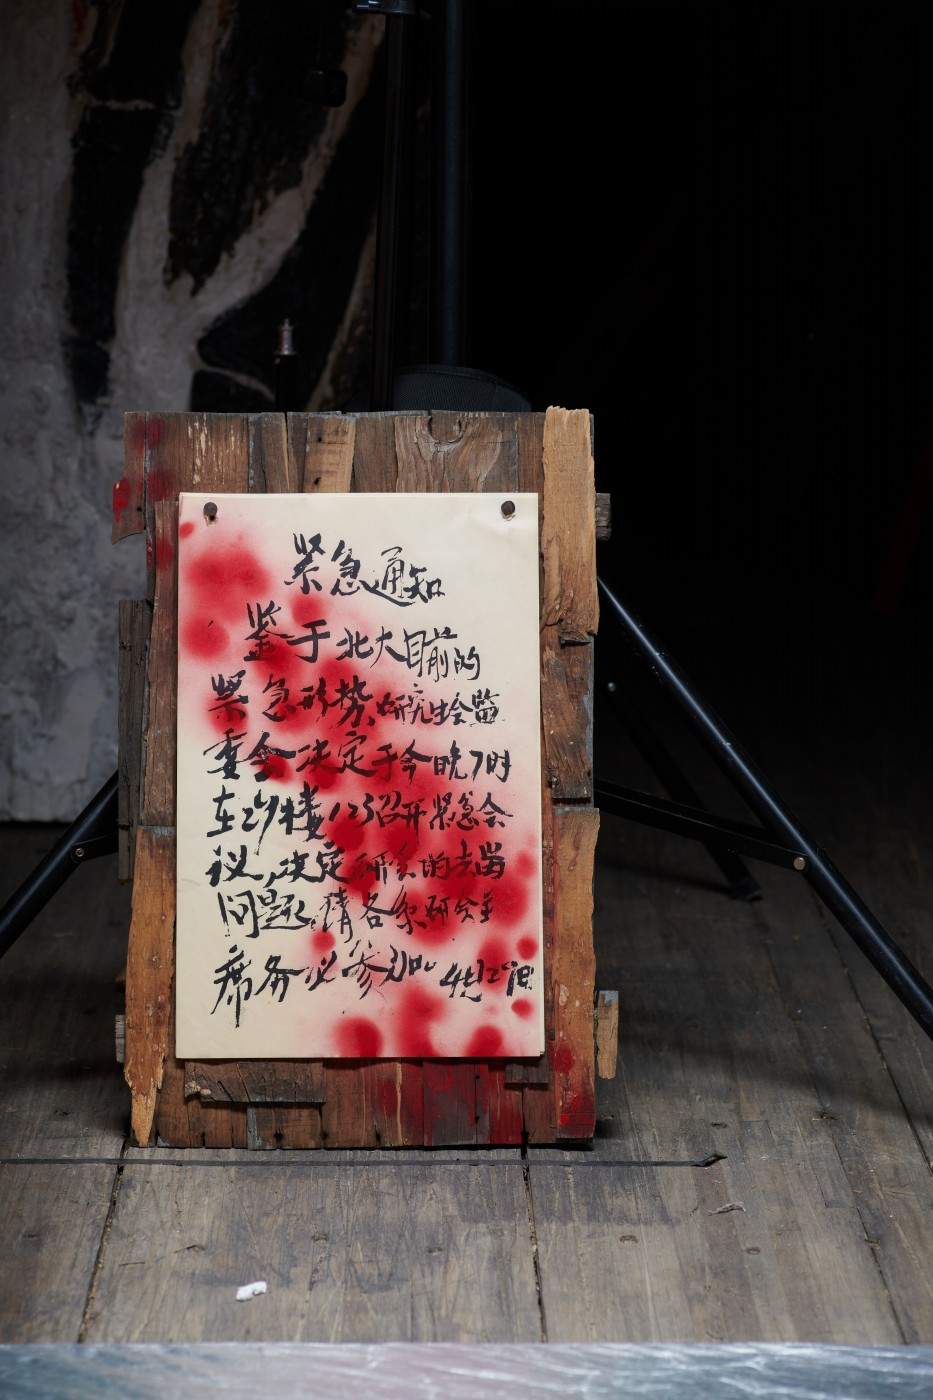 紧急通知
鉴于北大目前的
紧急形势,研究生会监
委会决定于今晚7时
在29楼123召开紧急会
议,决定研会的去留
问题,请各系研会主
席务必参加